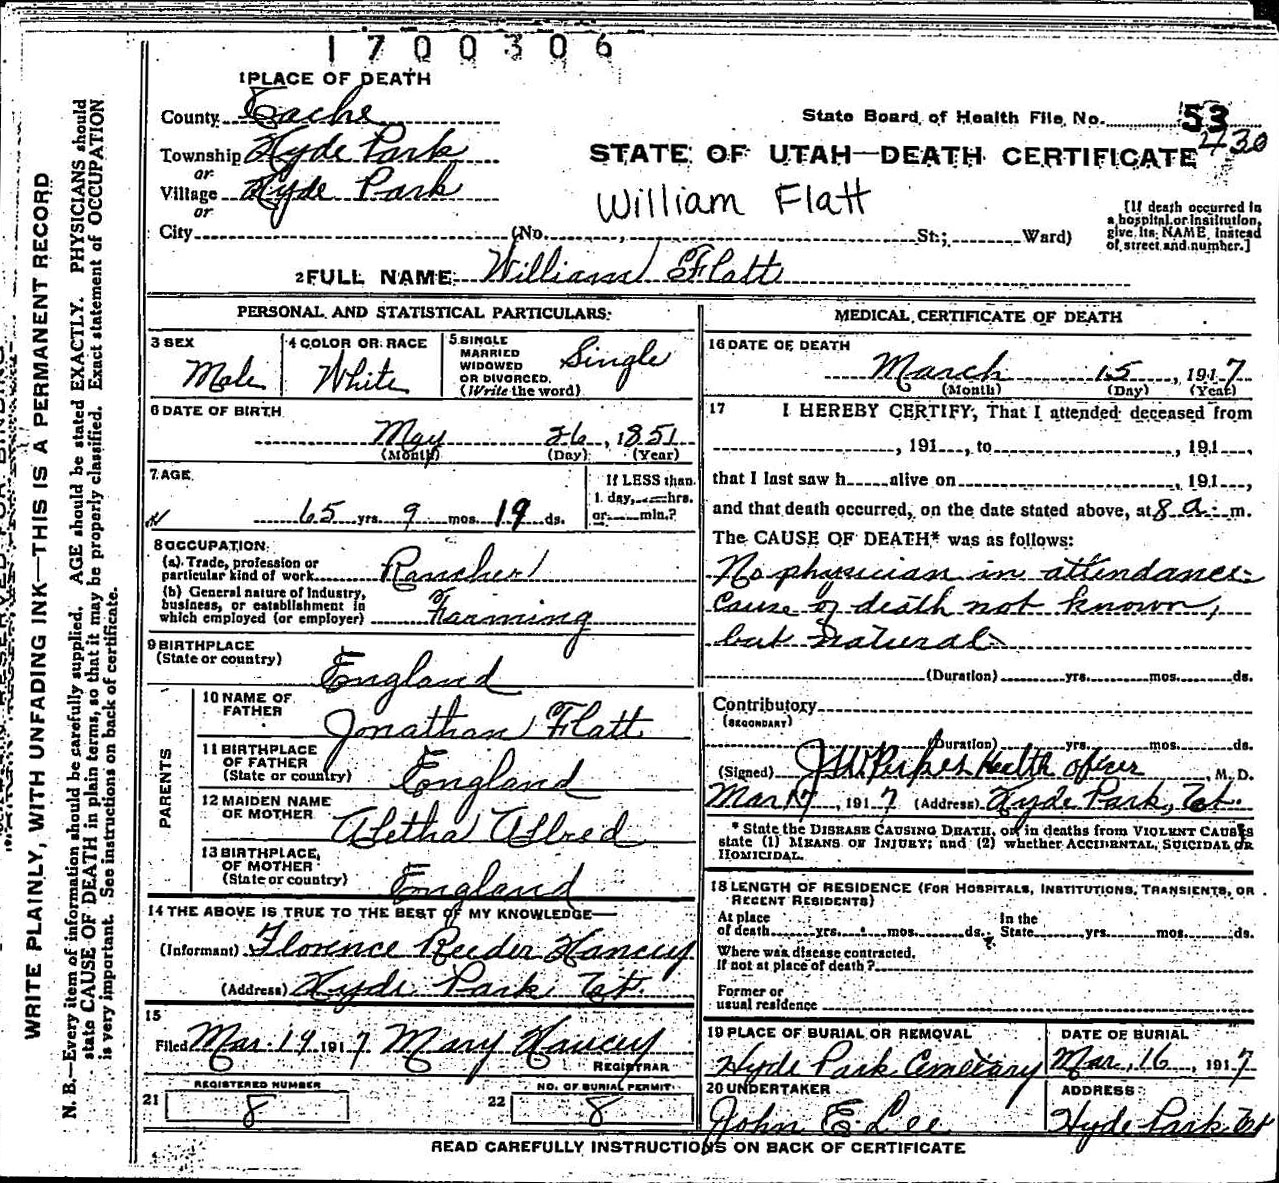 1700306
1 PLACE OF DEATH
County Cache
State Board of Health File No. 53
430
Township Hyde Park
or
STATE OF UTAH—DEATH CERTIFICATE
Village Hyde Park
or
William Flatt
[If death occurred in
a hospital or institution,
give its NAME, instead
of street and number.]
City (No. , St.; Ward)
2 FULL NAME William Flatt
PERSONAL AND STATISTICAL PARTICULARS:
3 SEX
Male
4 COLOR OR RACE
White
5 SINGLE
MARRIED
WIDOWED
OR DIVORCED.
(Write the word)
Single
6 DATE OF BIRTH
May 26, 1851
(Month) (Day) (Year)
7 AGE
65 yrs. 9 mos. 19 ds.
If LESS than
1 day, hrs.
or min.?
8 OCCUPATION
(a) Trade, profession or
particular kind of work Rancher
(b) General nature of Industry,
business, or establishment in
which employed (or employer) Farming
9 BIRTHPLACE
(State or country)
England
PARENTS
10 NAME OF
FATHER
Jonathan Flatt
11 BIRTHPLACE
OF FATHER
(State or country)
England
12 MAIDEN NAME
OF MOTHER
Aletha Allred
13 BIRTHPLACE,
OF MOTHER
(State or country)
England
14 THE ABOVE IS TRUE TO THE BEST OF MY KNOWLEDGE—
(Informant) Florence Reeder Hancey
(Address) Hyde Park Ut.
15
Filed Mar. 19 1917 Mary Hancey
REGISTRAR
REGISTERED NUMBER
21 8
NO. OF BURIAL PERMIT.
22 8
MEDICAL CERTIFICATE OF DEATH
16 DATE OF DEATH
March 15, 1917
(Month) (Day) (Year)
17 I HEREBY CERTIFY, That I attended deceased from
, 191 , to , 191 ,
that I last saw h alive on , 191 ,
and that death occurred, on the date stated above, at 8 a. m.
The CAUSE OF DEATH* was as follows:
No physician in attendance
Cause of death not known,
but natural
(Duration) yrs. mos. ds.
Contributory
(SECONDARY)
(Duration) yrs. mos. ds.
(Signed) J W Perkes Health Officer, M. D.
Mar 17, 1917 (Address) Hyde Park, Ut.
* State the DISEASE CAUSING DEATH, or, in deaths from VIOLENT CAUSES
state (1) MEANS OF INJURY; and (2) whether ACCIDENTAL, SUICIDAL OR
HOMICIDAL.
18 LENGTH OF RESIDENCE (FOR HOSPITALS, INSTITUTIONS, TRANSIENTS, OR
RECENT RESIDENTS)
At place
of death yrs. mos. ds.
In the
State yrs. mos. ds.
Where was disease contracted,
If not at place of death?
Former or
usual residence
19 PLACE OF BURIAL OR REMOVAL
Hyde Park Cemetary
DATE OF BURIAL
Mar, 16, 1917
20 UNDERTAKER
John E. Lee
ADDRESS
Hyde Park Ut
READ CAREFULLY INSTRUCTIONS ON BACK OF CERTIFICATE
WRITE PLAINLY, WITH UNFADING INK—THIS IS A PERMANENT RECORD
N. B.—Every item of information should be carefully supplied. AGE should be stated EXACTLY. PHYSICIANS should
state CAUSE OF DEATH in plain terms, so that it may be properly classified. Exact statement of OCCUPATION
is very important. See instructions on back of certificate.